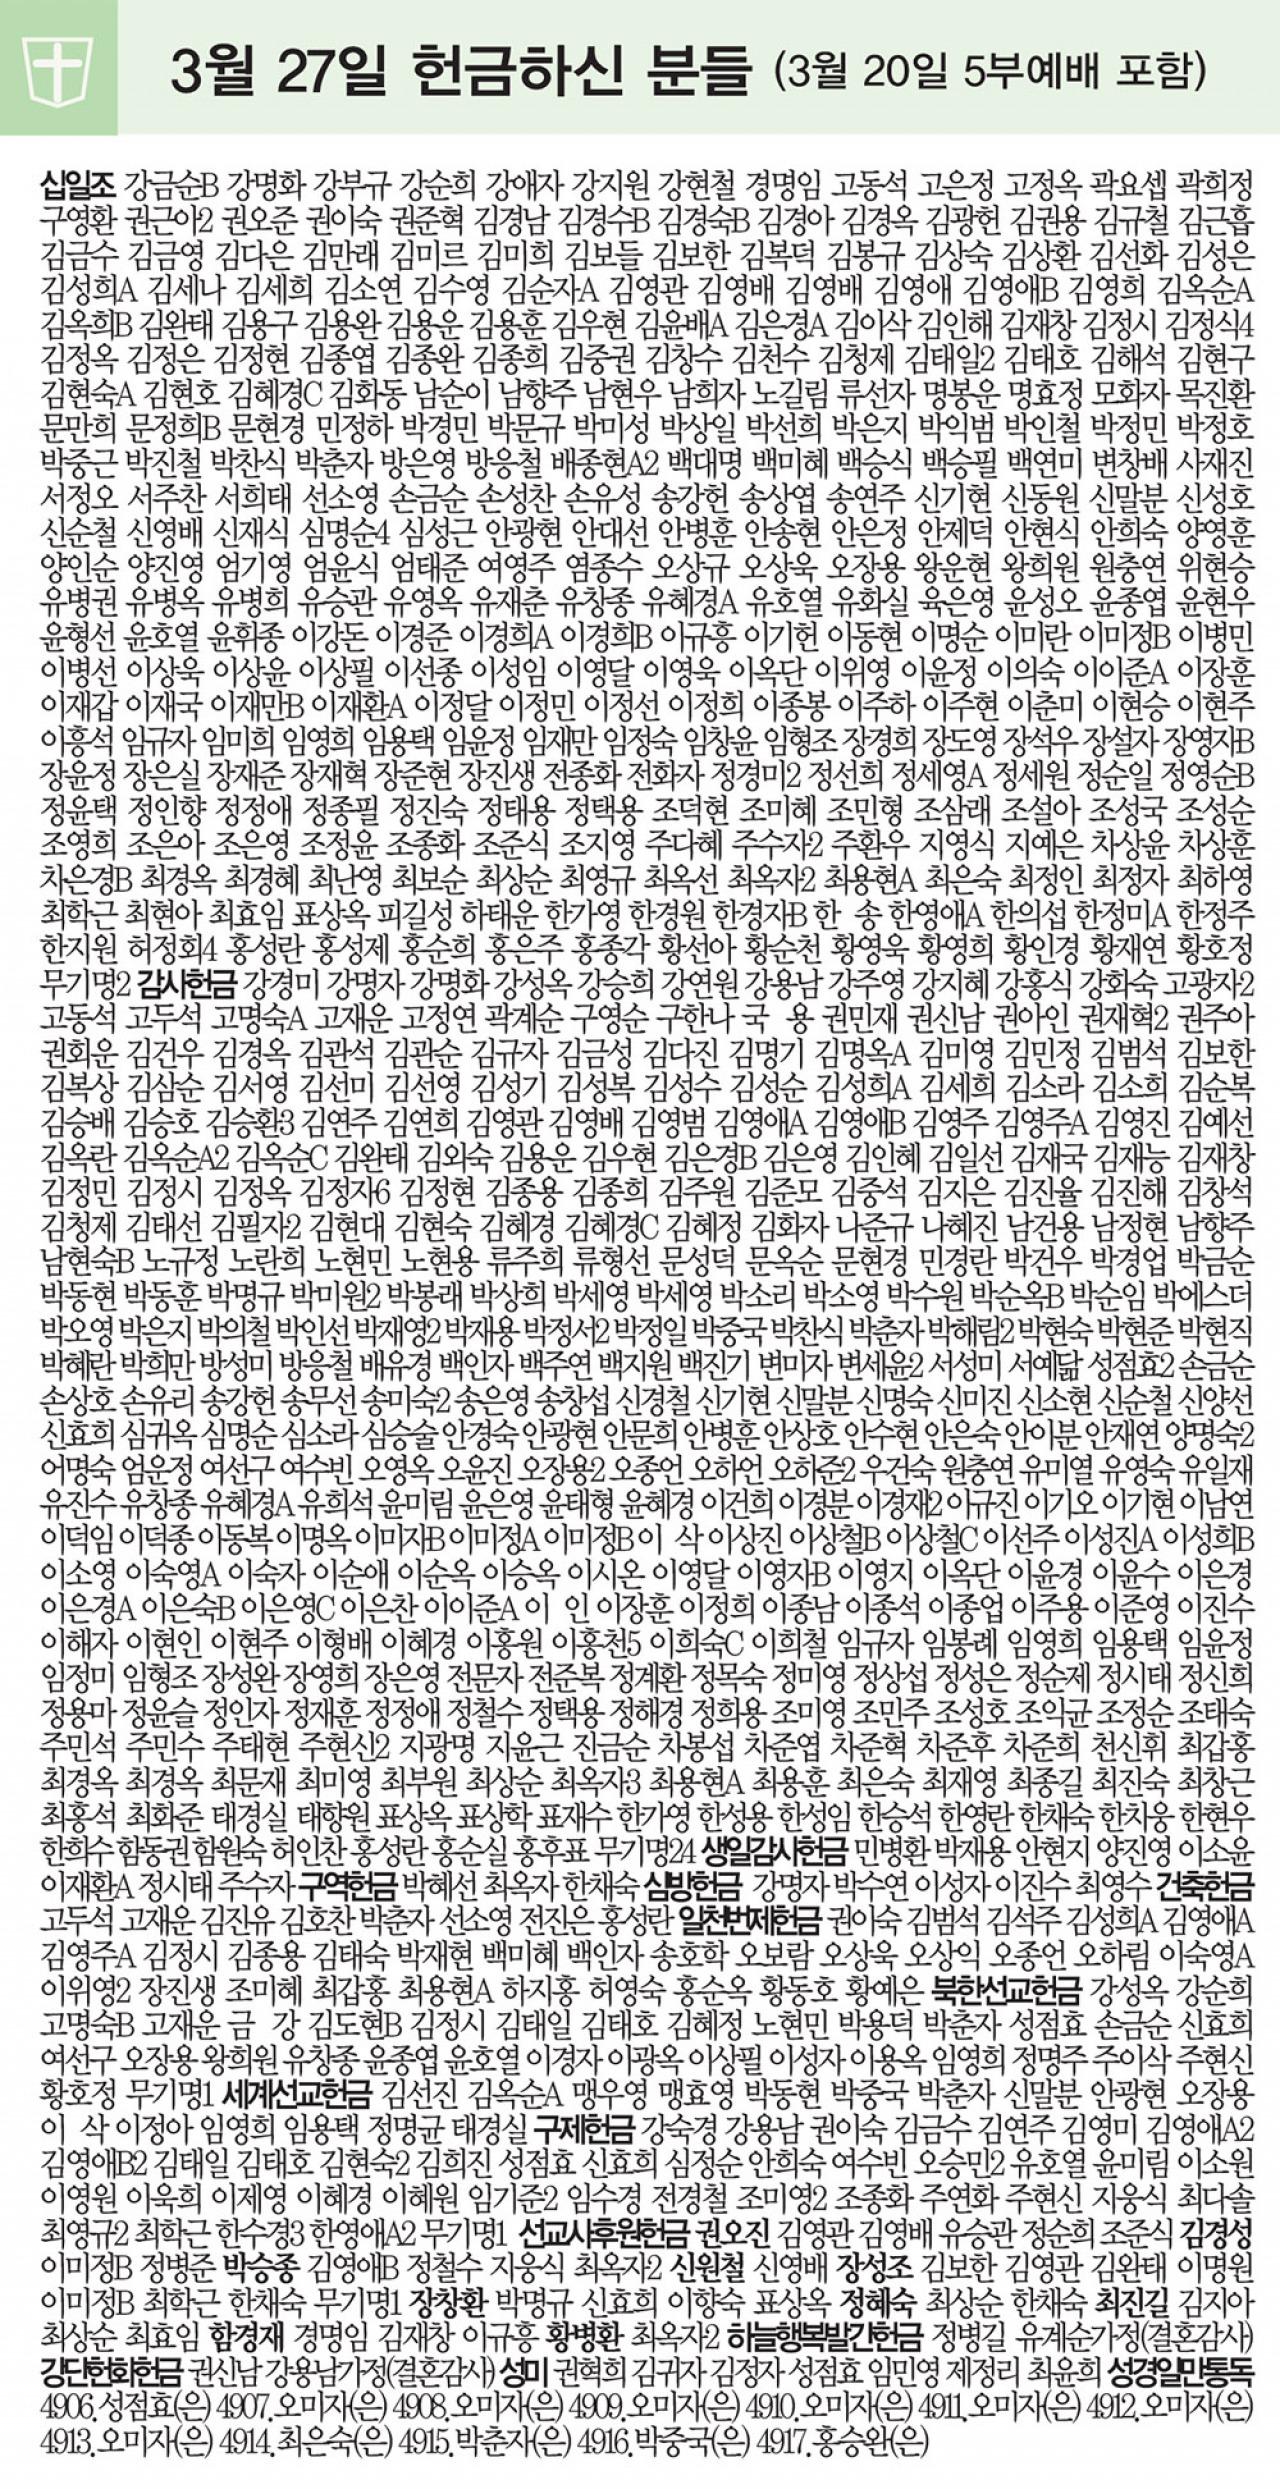 3월 27일 헌금하신 분들 (3월 20일 5부예배 포함)
십일조 강금순B 강명화 강부규 강순희 강애자 강지원 강현철 경명임 고동석 고은정 고정옥 곽요셉 곽희정
구영환 권근아2 권오준 권이숙 권준혁 김경남 김경수B 김경숙B 김경아 김경옥 김광헌 김권용 김규철 김근흡
김금수 김금영 김다은 김만래 김미르 김미희 김보들 김보한 김복덕 김봉규 김상숙 김상환 김선화 김성은
김성희A 김세나 김세희 김소연 김수영 김순자A 김영관 김영배 김영배 김영애 김영애B 김영희 김옥순A
김옥희B 김완태 김용구 김용완 김용운 김용훈 김우현 김윤배A 김은경A 김이삭 김인해 김재창 김정시 김정식4
김정옥 김정은 김정현 김종엽 김종완 김종희 김중권 김창수 김천수 김청제 김태일2 김태호 김해석 김현구
김현숙A 김현호 김혜경C 김화동 남순이 남향주 남현우 남희자 노길림 류선자 명봉운 명효정 모화자 목진환
문만희 문정희B 문현경 민정하 박경민 박문규 박미성 박상일 박선희 박은지 박익범 박인철 박정민 박정호
박중근 박진철 박찬식 박춘자 방은영 방응철 배종현A2 백대명 백미혜 백승식 백승필 백연미 변창배 사재진
서정오 서주찬 서희태 선소영 손금순 손성찬 손유성 송강헌 송상엽 송연주 신기현 신동원 신말분 신성호
신순철 신영배 신재식 심명순4 심성근 안광현 안대선 안병훈 안송현 안은정 안제덕 안현식 안희숙 양영훈
양인순 양진영 엄기영 엄윤식 엄태준 여영주 염종수 오상규 오상욱 오장용 왕운현 왕희원 원충연 위현승
유병권 유병옥 유병희 유승관 유영옥 유재춘 유창종 유혜경A 유호열 유화실 육은영 윤성오 윤종엽 윤현우
윤형선 윤호열 윤휘종 이강돈 이경준 이경희A 이경희B 이규흥 이기헌 이동현 이명순 이미란 이미정B 이병민
이병선 이상욱 이상윤 이상필 이선종 이성임 이영달 이영욱 이옥단 이위영 이윤정 이의숙 이이준A 이장훈
이재갑 이재국 이재만B 이재환A 이정달 이정민 이정선 이정희 이종봉 이주하 이주현 이춘미 이현승 이현주
이흥석 임규자 임미희 임영희 임용택 임윤정 임재만 임정숙 임창윤 임형조 장경희 장도영 장석우 장설자 장영자B
장윤정 장은실 장재준 장재혁 장준현 장진생 전종화 전화자 정경미2 정선희 정세영A 정세원 정순일 정영순B
정윤택 정인향 정정애 정종필 정진숙 정태용 정택용 조덕현 조미혜 조민형 조삼래 조설아 조성국 조성순
조영희 조은아 조은영 조정윤 조종화 조준식 조지영 주다혜 주수자2 주환우 지영식 지예은 차상윤 차상훈
차은경B 최경옥 최경혜 최난영 최보순 최상순 최영규 최옥선 최옥자2 최용현A 최은숙 최정인 최정자 최하영
최학근 최현아 최효임 표상옥 피길성 하태운 한가영 한경원 한경자B 한 송 한영애A 한의섭 한정미A 한정주
한지원 허정회4 홍성란 홍성제 홍순희 홍은주 홍종각 황선아 황순천 황영욱 황영희 황인경 황재연 황호정
무기명2 감사헌금 강경미 강명자 강명화 강성옥 강승희 강연원 강용남 강주영 강지혜 강홍식 강화숙 고광자2
고동석 고두석 고명숙A 고재운 고정연 곽계순 구영순 구한나 국 용 권민재 권신남 권아인 권재혁2 권주아
권회운 김건우 김경옥 김관석 김관순 김규자 김금성 김다진 김명기 김명옥A 김미영 김민정 김범석 김보한
김복상 김삼순 김서영 김선미 김선영 김성기 김성복 김성수 김성순 김성희A 김세희 김소라 김소희 김순복
김승배 김승호 김승환3 김연주 김연희 김영관 김영배 김영범 김영애A 김영애B 김영주 김영주A 김영진 김예선
김옥란 김옥순A2 김옥순C 김완태 김외숙 김용운 김우현 김은경B 김은영 김인혜 김일선 김재국 김재능 김재창
김정민 김정시 김정옥 김정자6 김정현 김종용 김종희 김주원 김준모 김중석 김지은 김진율 김진해 김창석
김청제 김태선 김필자2 김현대 김현숙 김혜경 김혜경C 김혜정 김화자 나준규 나혜진 남건용 남정현 남향주
남현숙B 노규정 노란희 노현민 노현용 류주희 류형선 문성덕 문옥순 문현경 민경란 박건우 박경업 박금순
박동현 박동훈 박명규 박미원2 박봉래 박상희 박세영 박세영 박소리 박소영 박수원 박순옥B 박순임 박에스더
박오영 박은지 박의철 박인선 박재영2 박재용 박정서2 박정일 박중국 박찬식 박춘자 박해림2 박현숙 박현준 박현직
박혜란 박희만 방성미 방응철 배유경 백인자 백주연 백지원 백진기 변미자 변세윤2 서성미 서예닮 성점효2 손금순
손상호 손유리 송강헌 송무선 송미숙2 송은영 송창섭 신경철 신기현 신말분 신명숙 신미진 신소현 신순철 신양선
신효희 심귀옥 심명순 심소라 심승술 안경숙 안광현 안문희 안병훈 안상호 안수현 안은숙 안이분 안재연 양명숙2
어명숙 엄운정 여선구 여수빈 오영옥 오윤진 오장용2 오종언 오하언 오하준2 우건숙 원충연 유미열 유영숙 유일재
유진수 유창종 유혜경A 유희석 윤미림 윤은영 윤태형 윤혜경 이건희 이경분 이경재2 이규진 이기오 이기현 이남연
이덕임 이덕종 이동복 이명옥 이미자B 이미정A 이미정B 이 삭 이상진 이상철B 이상철C 이선주 이성진A 이성희B
이소영 이숙영A 이숙자 이순애 이순옥 이승옥 이시온 이영달 이영자B 이영지 이옥단 이윤경 이윤수 이은경
이은경A 이은숙B 이은영C 이은찬 이이준A 이 인 이장훈 이정희 이종남 이종석 이종업 이주용 이준영 이진수
이해자 이현인 이현주 이형배 이혜경 이홍원 이홍천5 이희숙C 이희철 임규자 임봉례 임영희 임용택 임윤정
임정미 임형조 장성완 장영희 장은영 전문자 전준복 정계환 정목숙 정미영 정상섭 정성은 정순제 정시태 정신희
정용마 정윤슬 정인자 정재훈 정정애 정철수 정택용 정해경 정희용 조미영 조민주 조성호 조익균 조정순 조태숙
주민석 주민수 주태현 주현신2 지광명 지윤근 진금순 차봉섭 차준엽 차준혁 차준후 차준희 천신휘 최갑홍
최경옥 최경옥 최문재 최미영 최부원 최상순 최옥자3 최용현A 최용훈 최은숙 최재영 최종길 최진숙 최창근
최홍석 최화준 태경실 태향원 표상옥 표상학 표재수 한가영 한성용 한성임 한승석 한영란 한채숙 한치웅 한현우
한희수 함동권 함원숙 허인찬 홍성란 홍순실 홍후표 무기명24 생일감사헌금 민병환 박재용 안현지 양진영 이소윤
이재환A 정시태 주수자 구역헌금 박혜선 최옥자 한채숙 심방헌금 강명자 박수연 이성자 이진수 최영수 건축헌금
고두석 고재운 김진유 김호찬 박춘자 선소영 전진은 홍성란 일천번제헌금 권이숙 김범석 김석주 김성희A 김영애A
김영주A 김정시 김종용 김태숙 박재현 백미혜 백인자 송호학 오보람 오상욱 오상익 오종언 오하림 이숙영A
이위영2 장진생 조미혜 최갑홍 최용현A 하지홍 허영숙 홍순옥 황동호 황예은 북한선교헌금 강성옥 강순희
고명숙B 고재운 금 강 김도현B 김정시 김태일 김태호 김혜정 노현민 박용덕 박춘자 성점효 손금순 신효희
여선구 오장용 왕희원 유창종 윤종엽 윤호열 이경자 이광옥 이상필 이성자 이용옥 임영희 정명주 주이삭 주현신
황호정 무기명1 세계선교헌금 김선진 김옥순A 맹우영 맹효영 박동현 박중국 박춘자 신말분 안광현 오장용
이 삭 이정아 임영희 임용택 정명균 태경실 구제헌금 강숙경 강용남 권이숙 김금수 김연주 김영미 김영애A2
김영애B2 김태일 김태호 김현숙2 김희진 성점효 신효희 심정순 안희숙 여수빈 오승민2 유호열 윤미림 이소원
이영원 이욱희 이제영 이혜경 이혜원 임기준2 임수경 전경철 조미영2 조종화 주연화 주현신 지웅식 최다솔
최영규2 최학근 한수경3 한영애A2 무기명1 선교사후원헌금 권오진 김영관 김영배 유승관 정순희 조준식 김경성
이미정B 정병준 박승종 김영애B 정철수 지웅식 최옥자2 신원철 신영배 장성조 김보한 김영관 김완태 이명원
이미정B 최학근 한채숙 무기명1 장창환 박명규 신효희 이향숙 표상옥 정혜숙 최상순 한채숙 최진길 김지아
최상순 최효임 함경재 경명임 김재창 이규흥 황병환 최옥자2 하늘행복발간헌금 정병길 유계순가정(결혼감사)
강단헌화헌금 권신남 강용남가정(결혼감사) 성미 권혁희 김귀자 김정자 성점효 임민영 제정리 최윤희 성경일만통독
4906.성점효(은) 4907.오미자(은) 4908.오미자(은) 4909.오미자(은) 4910.오미자(은) 4911.오미자(은) 4912.오미자(은)
4913.오미자(은) 4914.최은숙(은) 4915.박춘자(은) 4916.박중국(은) 4917.홍승완(은)